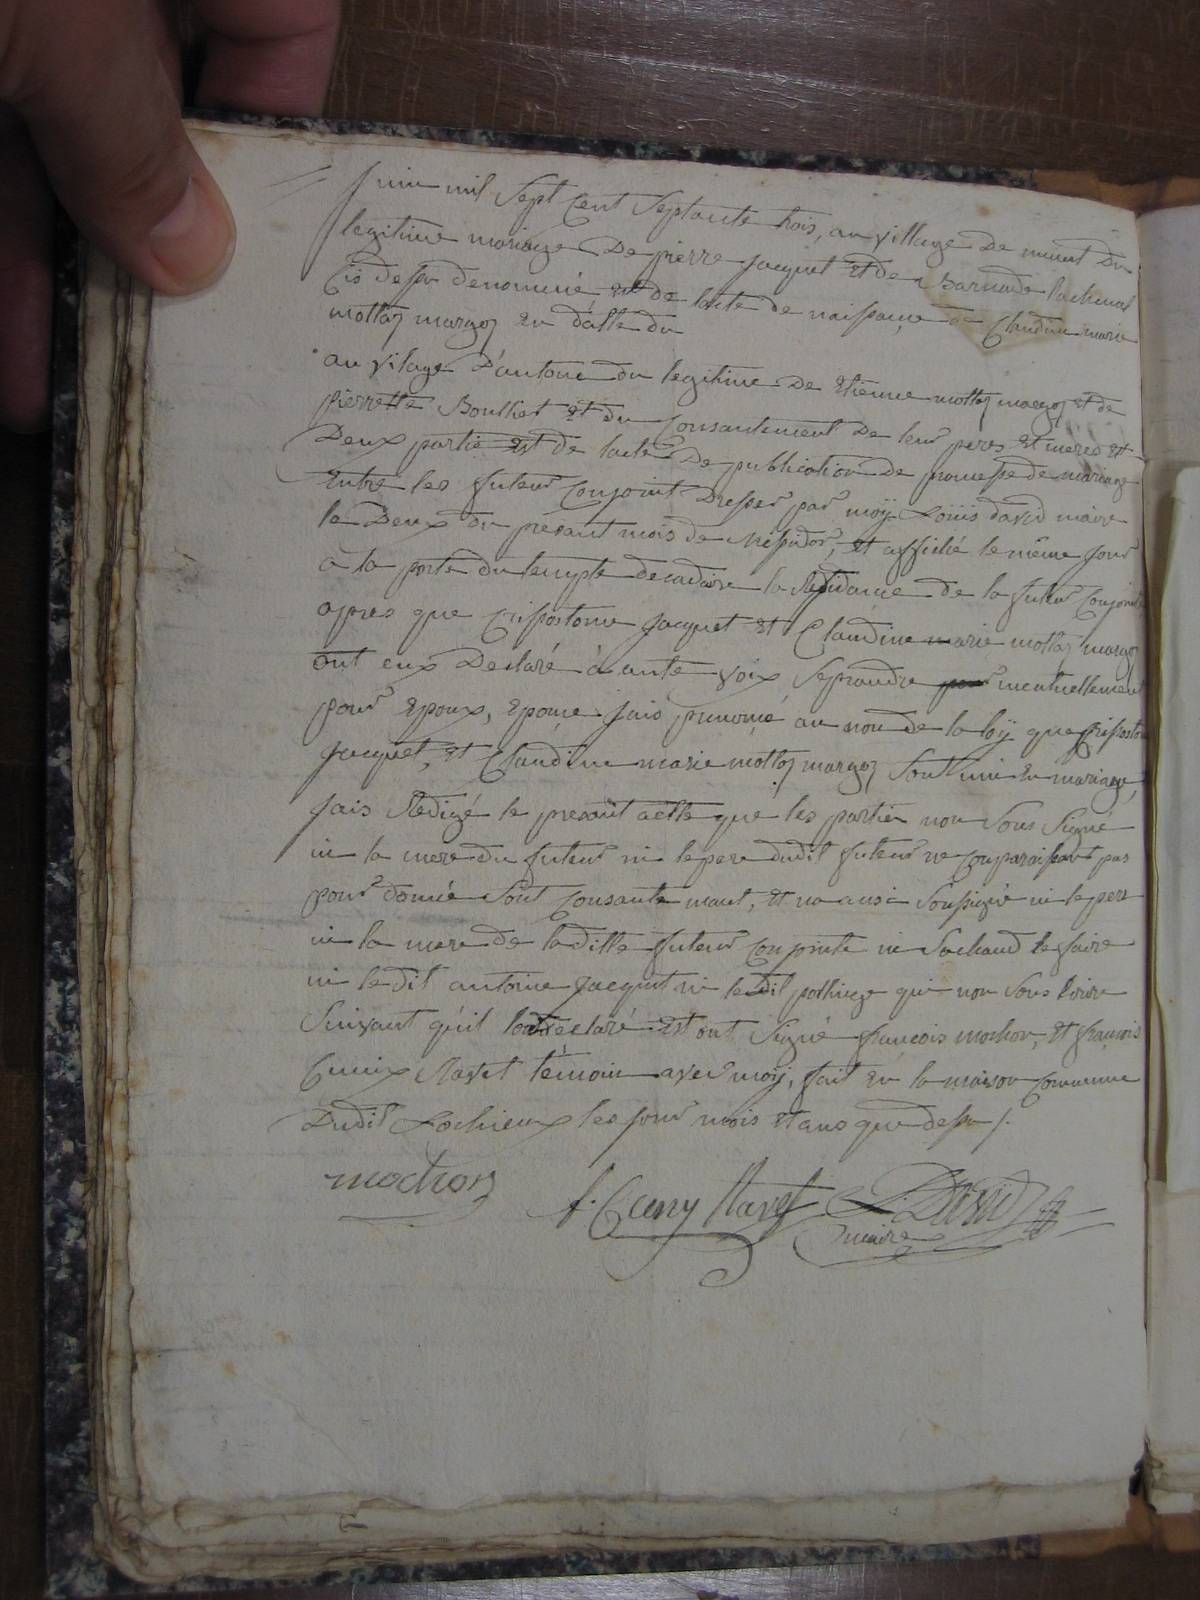 Juin mil Sept Cent Septante trois, au village De munet Du
legitime mariage De pierre Jacquet Et de Bernarde
Cis desu denommé, Et de lacte de naissance de Claudine marie
mottaz margoz En datte du
au vilage D'antone du legitime De Etienne mottaz margoz Et de
pierrette Boullet Et du Consantement De leur peres Et meres Et
Deux partie Est de lacte De publication De promesse de mariage
Entre les futeur Conjoint Dresser par moy Loüis david maire
le Deux du présant mois de Mesidor, Et affiché le même jour
a la porte du temple decadaire la Residance de la futeur Conjointe
apres que Crisostome Jacquet Et Claudine marie mottaz margoz
ont eux Declaré à aute voix Seprandre pour mentuellement
pour Epoux, Epouse Jais prenomé au nom de la loÿ que Crisostome
Jacquet, Et Claudine marie mottaz margoz Sont uni En mariage,
Jais Redigé le presant actte que les partien non Sous Signé
ni la mere du futeur ni le pere dudit futeur ne Comparaissant pas
pour donné Sont Consante mant, Et na ausi Soussigné ni le pere
ni la mere de laditte futeur Conjointe ne Sachand le faire
ni ledit antoine Jacquet ni ledit qui non Sous
Suivant quil declaré Est ont Signé françois mochon, Et françois
Cuniÿ Ravet temoin avec moÿ, fait En la maison Commune
Dudit Lochieux les jour mois Et ans que desu /.
mochon
f. Cuny Ravet L. David
maire